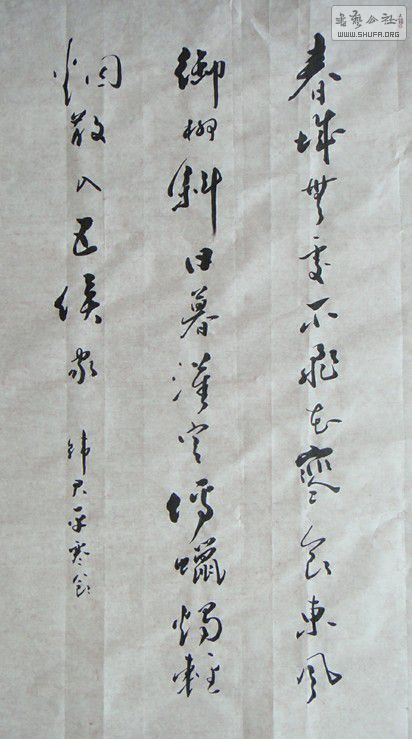 春城無處不飛花寒食東風
御柳斜日暮漢宮傳蠟燭輕
烟散入五侯家
韓君平寒食
書藝公社
WWW.SHUFA.ORG